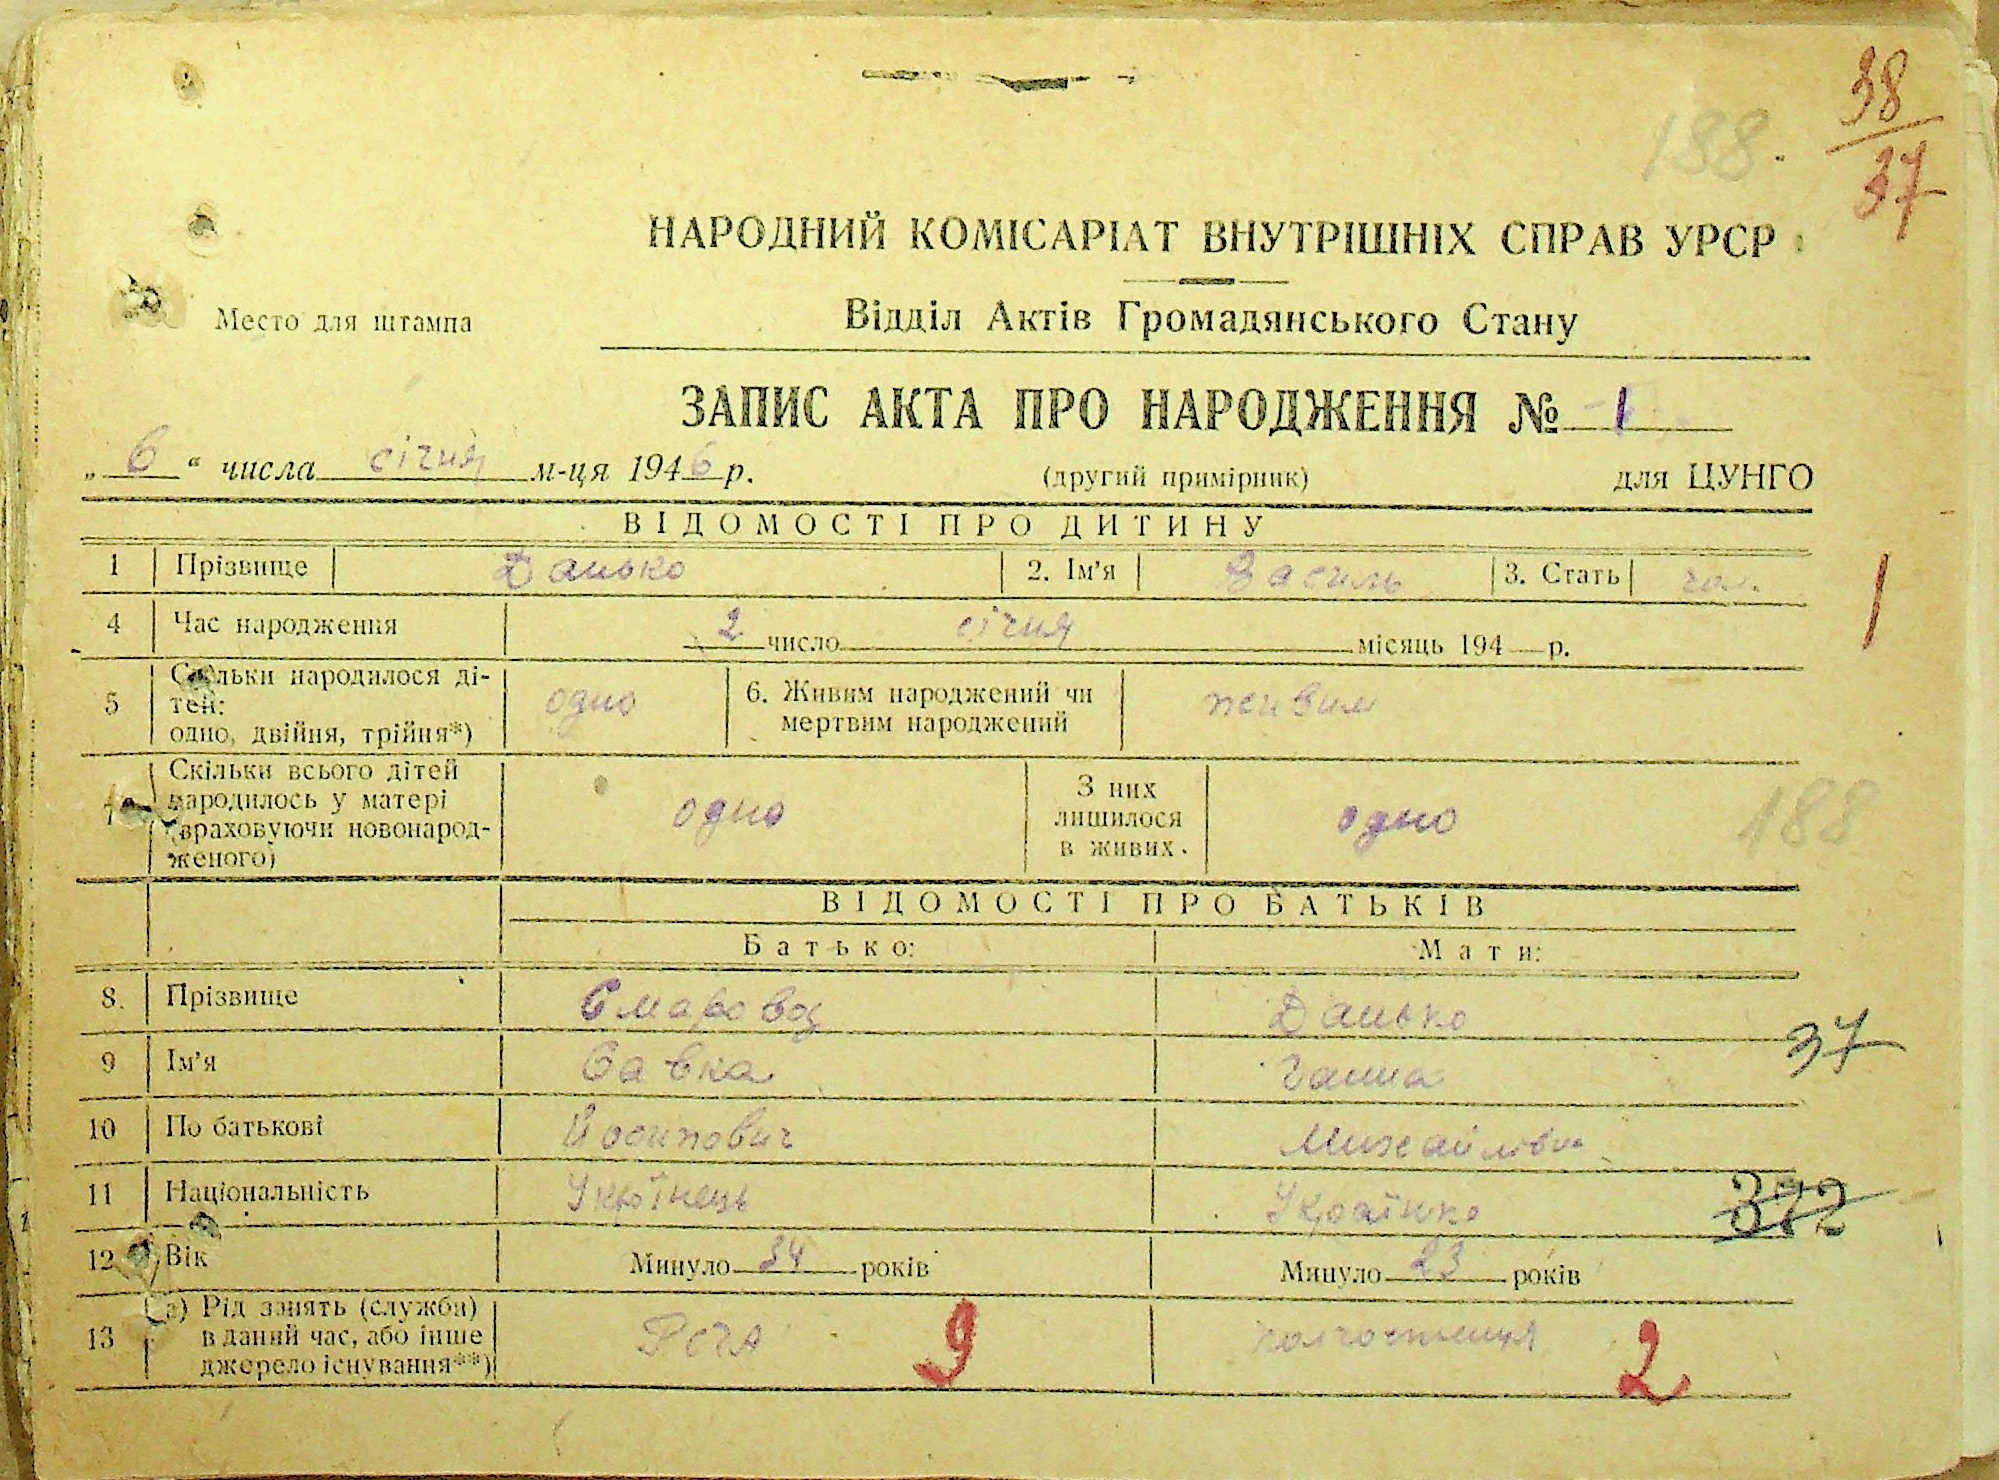 38
37
188.
НАРОДНИЙ КОМІСАРІАТ ВНУТРІШНІХ СПРАВ УРСР
Место для штампа
Відділ Актів Громадянського Стану
ЗАПИС АКТА ПРО НАРОДЖЕННЯ № 1
„ 6 “ числа січня м-ця 1946 р. (другий примірник) для ЦУНГО
ВІДОМОСТІ ПРО ДИТИНУ
1 Прізвище Данько 2. Ім'я Василь 3. Стать чол.
1
4 Час народження 2 число січня місяць 194 р.
5 Скільки народилося дітей: одно, двійня, трійня*) одно 6. Живим народжений чи мертвим народжений живим
Скільки всього дітей народилось у матері (враховуючи новонародженого) одно З них лишилося в живих. одно
188
ВІДОМОСТІ ПРО БАТЬКІВ
Батько: Мати:
8. Прізвище Данько
37
9 Ім'я Савка Ганна
10 По батькові Йосипович Михайлівна
11 Національність Українець Українка
372
12 Вік Минуло 34 років Минуло 23 років
13 а) Рід занять (служби) в даний час, або інше джерело існування**) РСЧА 9 колгоспниця 2